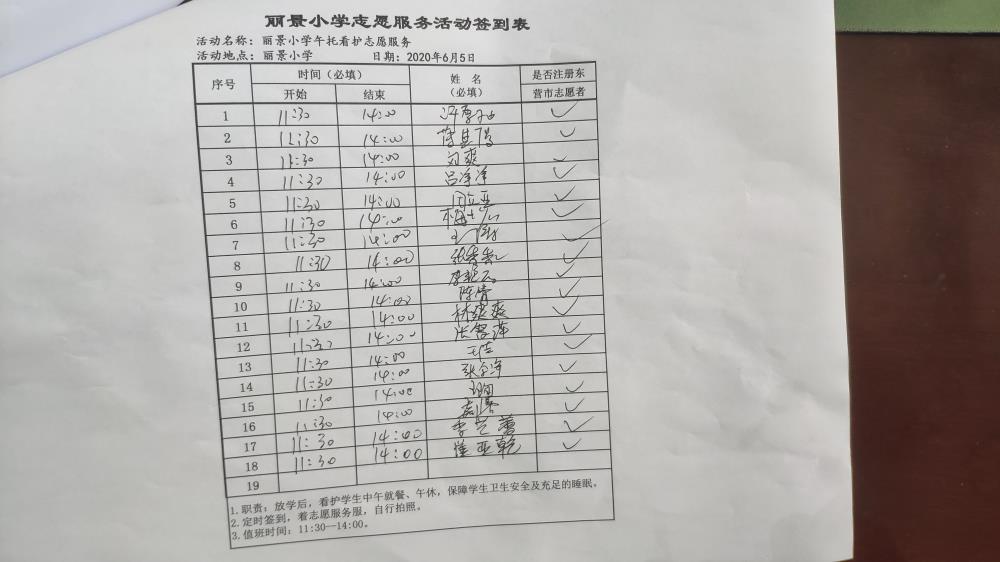 丽景小学志愿服务活动签到表
活动名称：丽景小学午托看护志愿服务
活动地点：丽景小学 日期：2020年6月5日
序号 时间（必填） 姓 名（必填） 是否注册东营市志愿者
开始 结束
1 11:30 14:00 ✓
2 11:30 14:00 ✓
3 11:30 14:00 刘爽 ✓
4 11:30 14:00 吕净净 ✓
5 11:30 14:00 ✓
6 11:30 14:00 ✓
7 11:30 14:00 ✓
8 11:30 14:00 ✓
9 11:30 14:00 ✓
10 11:30 14:00 陈倩 ✓
11 11:30 14:00 ✓
12 11:30 14:00 ✓
13 11:30 14:00 ✓
14 11:30 14:00 ✓
15 11:30 14:00 ✓
16 11:30 14:00 ✓
17 11:30 14:00 ✓
18 11:30 14:00 崔亚乾 ✓
19
1.职责：放学后，看护学生中午就餐、午休，保障学生卫生安全及充足的睡眠。
2.定时签到，着志愿服务服，自行拍照。
3.值班时间：11:30—14:00。